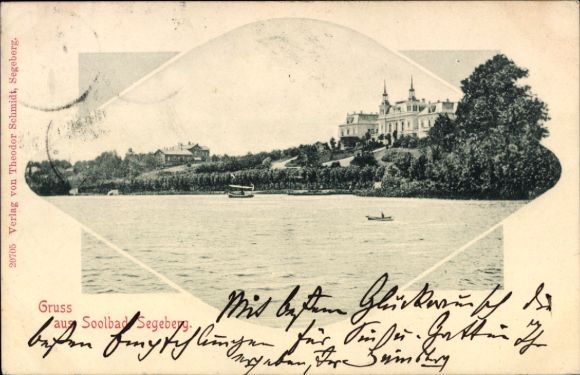 20705 Verlag von Theodor Schmidt, Segeberg.
Gruss
aus Soolbad Segeberg.
Mit bestem Glückwunsch die
besten Empfehlungen für Sie u. Gattin Ihr
ergebener